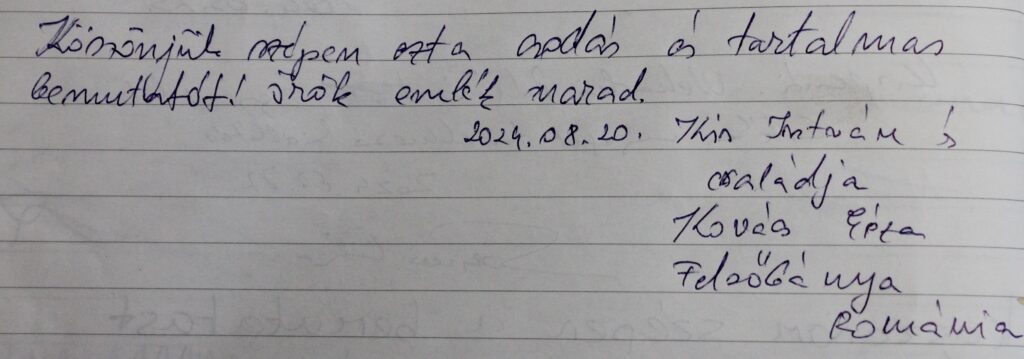 Köszönjük szépen ezt a csodás és tartalmas
bemutatót! örök emlék marad.
2024.08.20. Kis István és
családja
Kovács Géza
Felsőbánya
Románia